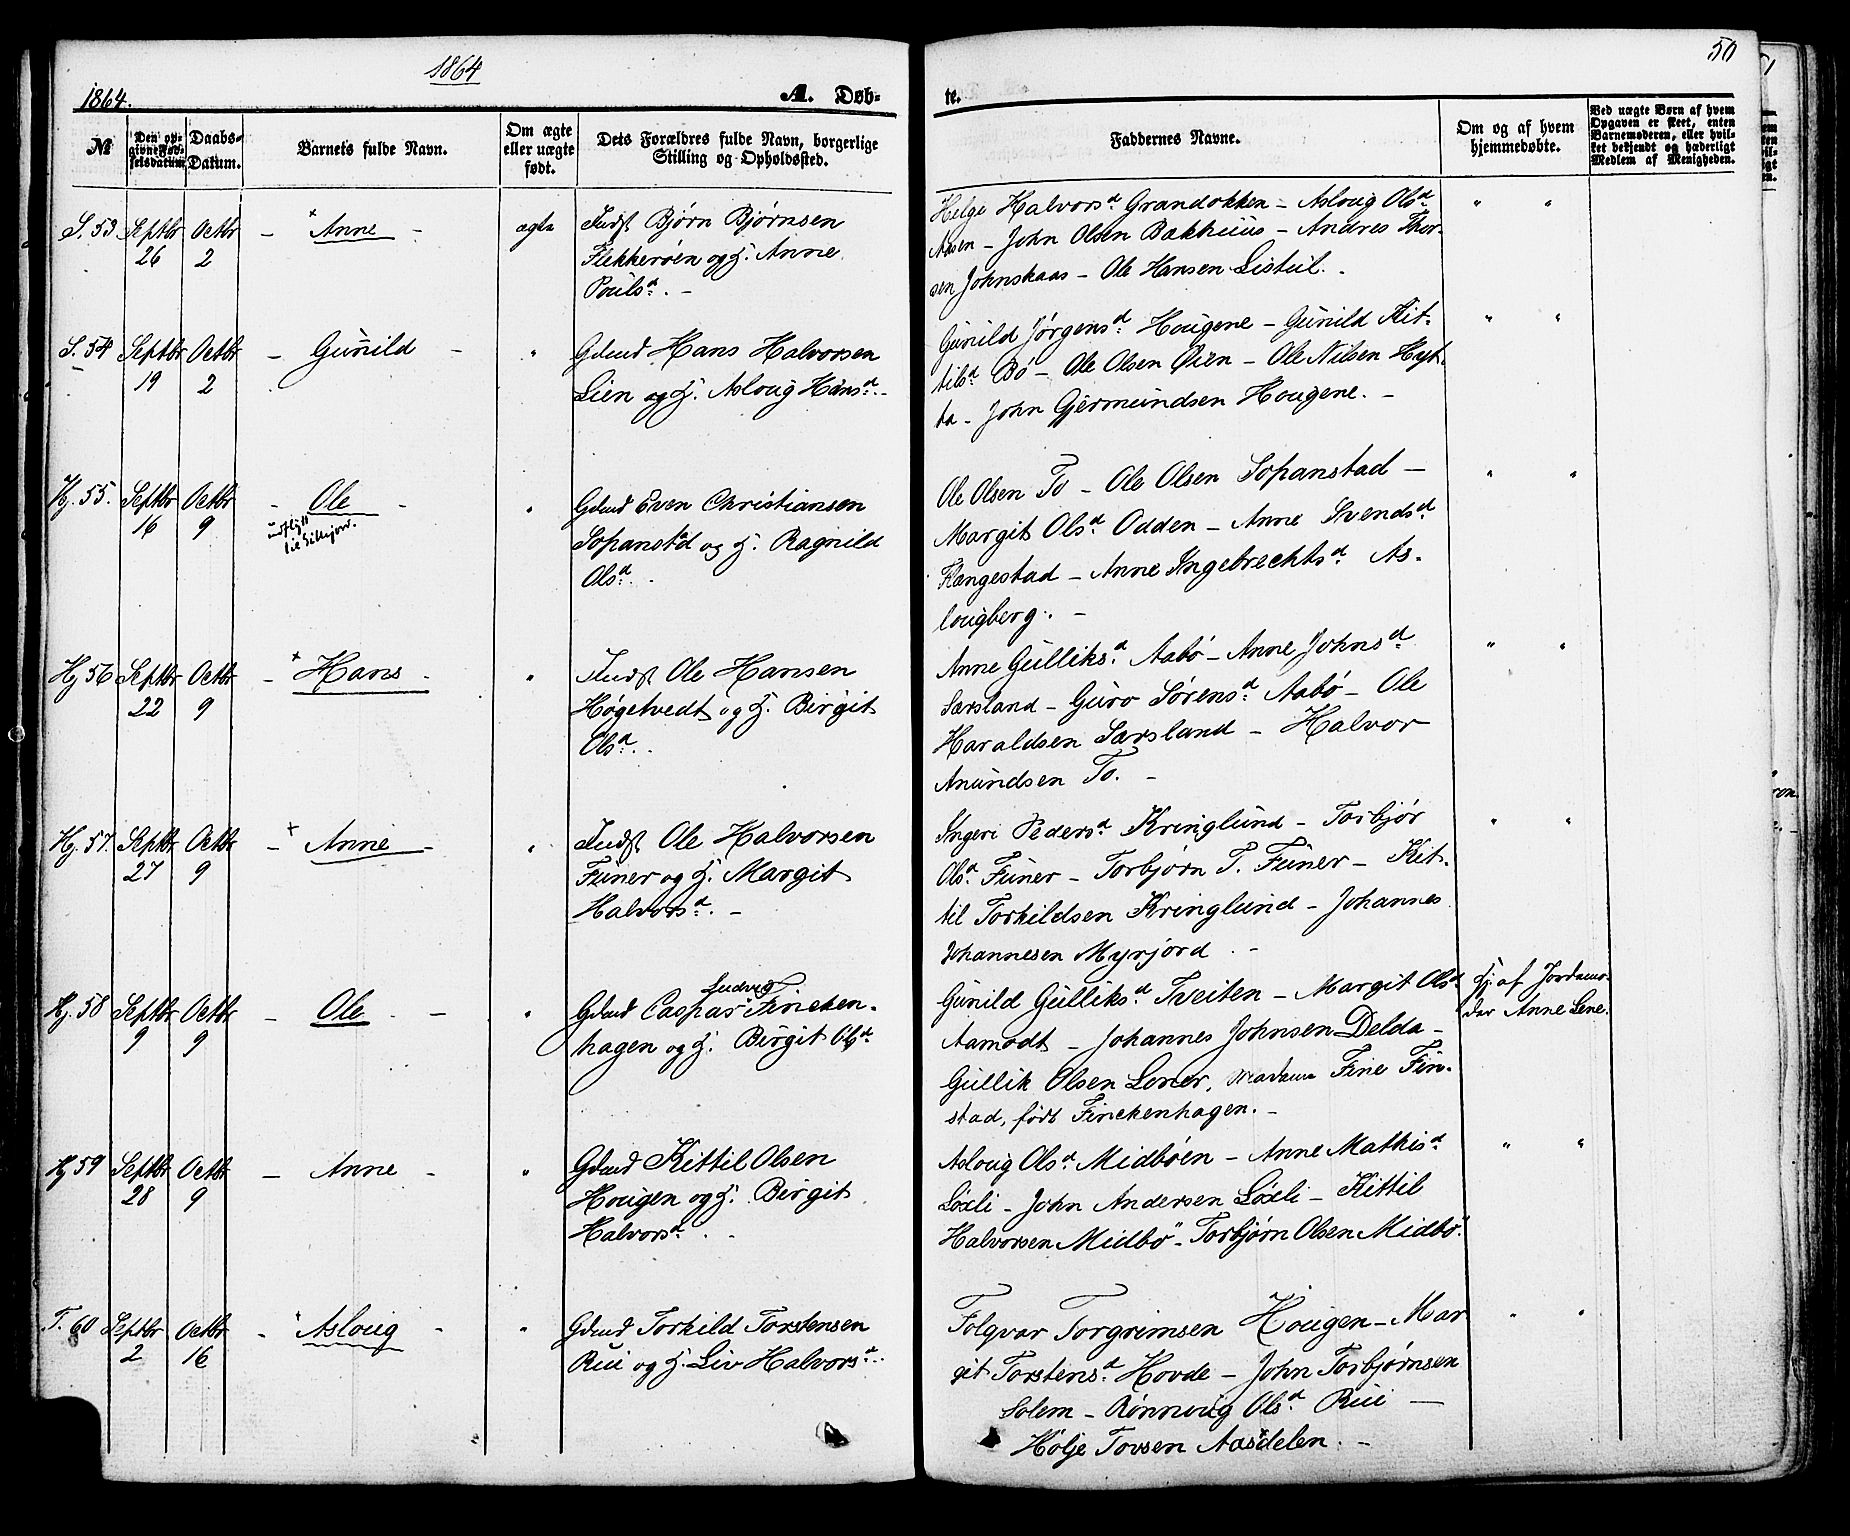 1864
50
1864.
A. Døb-
te.
№
Den op-
givne Fød-
selsdatum.
Daabs-
Datum.
Barnets fulde Navn.
Om ægte
eller uægte
født.
Dets Forældres fulde Navn, borgerlige
Stilling og Opholdssted.
Faddernes Navne.
Om og af hvem
hjemmedøbte.
Ved uægte Børn af hvem
Opgaven er skeet, enten
Barnemoderen, eller hvil-
ket bekjendt og hæderligt
Medlem af Menigheden.
S. 53 Septbr 26 Octbr 2 - + Anne - ægte
Indst Bjørn Bjørnsen
Flekkerøen og H. Anne
Pouls d. -
Helge Halvors d Grandokken - Asloug Ols d
Aasen - John Olsen Bakhuus - Andres Thor-
sen Johnskaas - Ole Hansen Listuil. - " "
S. 54 Septbr 19 Octbr 2 - Gunild - "
Gdmd Hans Halvorsen
Lien og H. Asloug Hans d. -
Gunild Jørgens d Hougene - Gunild Kit-
tils d Bø - Ole Olsen Øien - Ole Nilsen Hyt-
ta - John Gjermundsen Hougene. - " "
Hj. 55. Septbr 16 Octbr 9 - Ole - "
udflytt
til Silljor.
Gdmd Even Christiansen
Sopanstad og H. Ragnild
Ols d. -
Ole Olsen To - Ole Olsen Sopanstad -
Margit Ols d Odden - Anne Svends d
Flængestad - Anne Ingebrechts d As-
lougberg. - " "
Hj 56 Septbr 22 Octbr 9 - + Hans - "
Indst Ole Hansen
Høgetvedt og H. Birgit
Ols d. -
Anne Gulliks d Aabø - Anne Johns d
Særsland - Guro Sørens d Aabø - Ole
Haraldsen Særsland - Halvor
Anundsen To. - " "
Hj. 57. Septbr 27 Octbr 9 - + Anne - "
Indst Ole Halvorsen
Funer og H. Margit
Halvors d. -
Ingeri Peders d Kringlund - Torbjør
Ols d Funer - Torbjørn T. Funer - Kit-
til Torkildsen Kringlund - Johannes
Johannesen Myrjord. - " "
Hj. 58 Septbr 9 Octbr 9 - Ole - "
Ludvig
Gdmd Caspar Fincken-
hagen og H. Birgit Ols d
Gunild Gulliks d Tveiten - Margit Ols d
Aamodt - Johannes Johnsen Delda -
Gullik Olsen Loner, Madame Fine Fin-
stad, født Finckenhagen. -
Hj. af Jordemo-
der Anne Lene.
Hj 59 Septbr 28 Octbr 9 - Anne - "
Gdmd Kittil Olsen
Hougen og H. Birgit
Halvors d. -
Asloug Ols d Midbøen - Anne Mathis d
Løxli - John Andersen Løxli - Kittil
Halvorsen Midbø - Torbjørn Olsen Midbø. " "
T. 60 Septbr 2 Octbr 16 - + Asloug - "
Gdmd Torkild Torstensen
Rui og H. Liv Halvors d.
Folqvar Torgrimsen Hougen - Mar
git Torstens d Hovde - John Torbjørnsen
Solem - Rønnoug Ols d Rui -
Hølje Tovsen Aasdelen. - " "